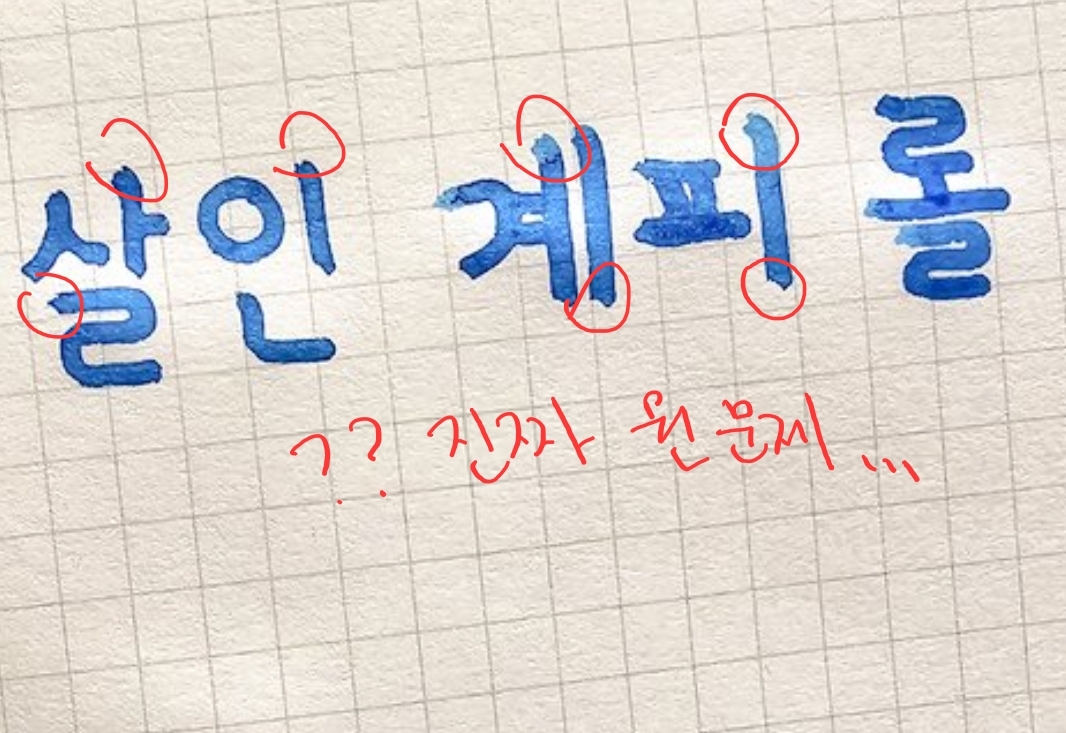 살인 계피 롤
?? 진짜 뭔 문제...